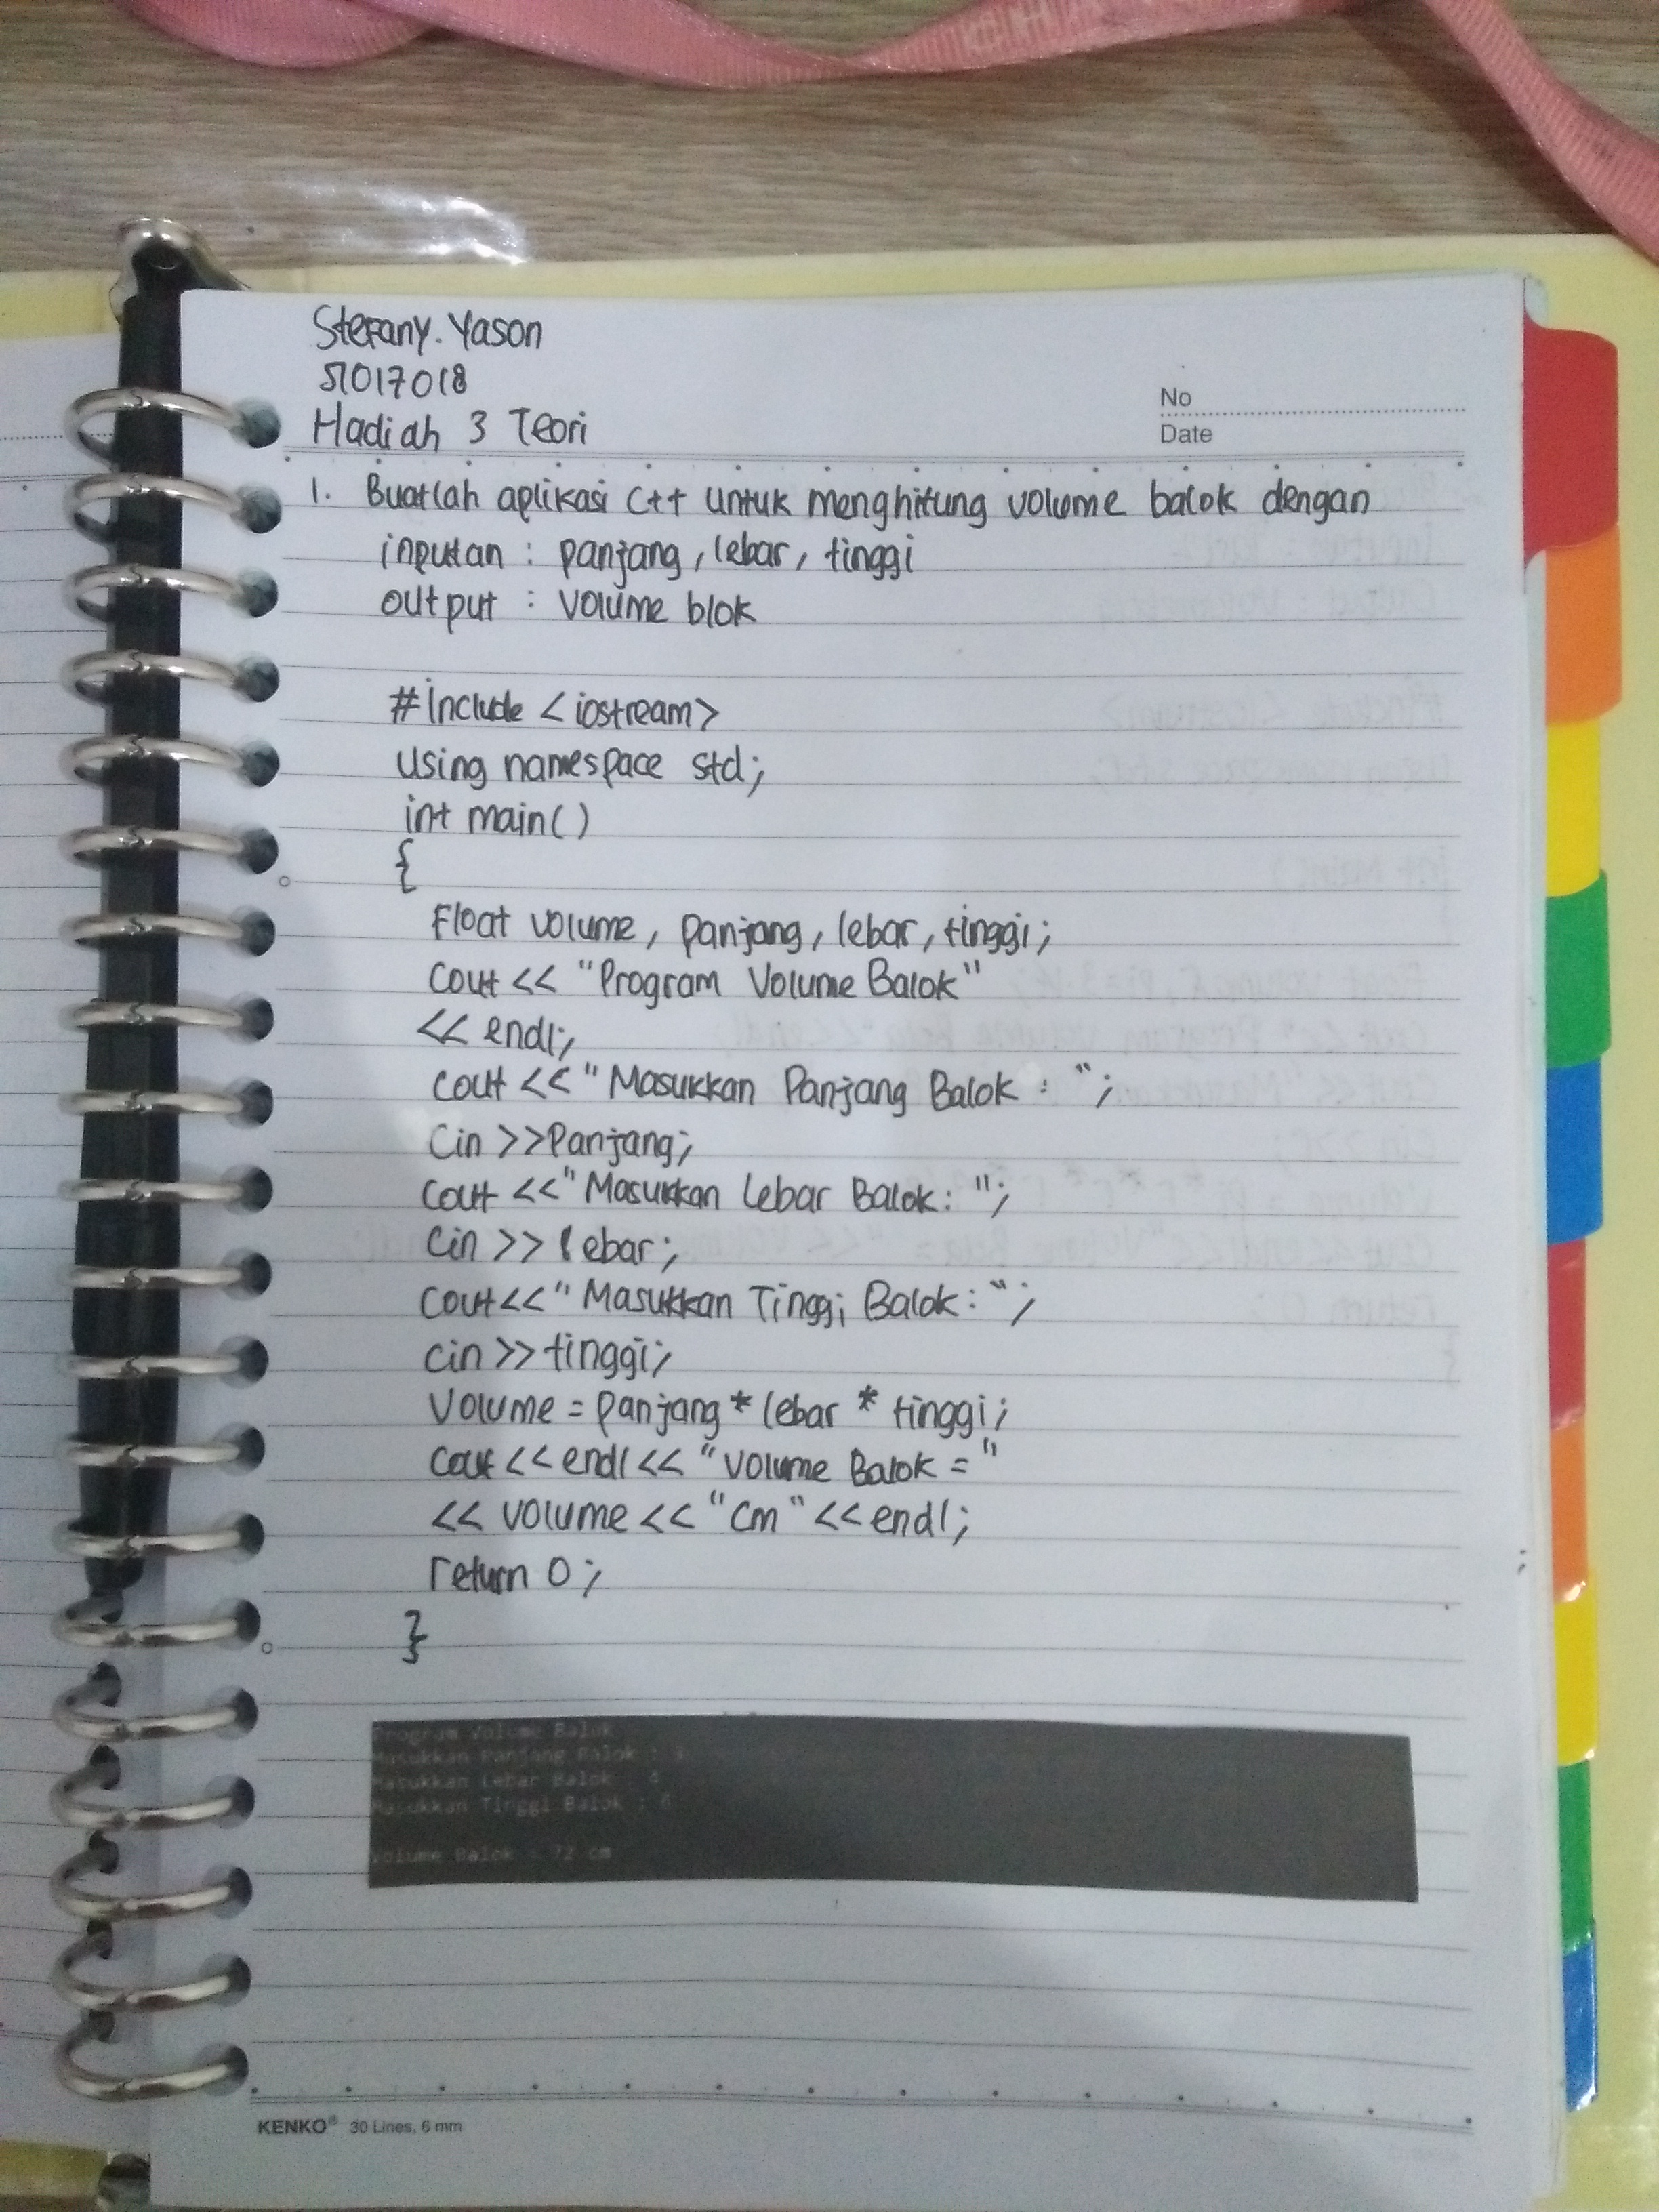 Stefany. Yason
51017018
Hadiah 3 Teori
No
Date
1. Buatlah aplikasi C++ untuk menghitung volume balok dengan
inputan : panjang, lebar, tinggi
output : volume blok
#include <iostream>
using namespace std;
int main()
{
Float volume, panjang, lebar, tinggi;
cout << "Program Volume Balok"
<< endl;
cout << "Masukkan Panjang Balok : ";
Cin >> Panjang;
cout << "Masukkan Lebar Balok : ";
Cin >> lebar;
cout << "Masukkan Tinggi Balok : ";
cin >> tinggi;
Volume = panjang * lebar * tinggi;
cout << endl << "Volume Balok = "
<< volume << "cm" << endl;
return 0;
}
Program Volume Balok
Masukkan Panjang Balok : 3
Masukkan Lebar Balok : 4
Masukkan Tinggi Balok : 6
Volume Balok = 72 cm
KENKO® 30 Lines, 6 mm